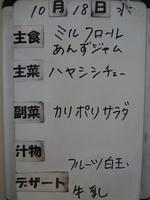 10月18日水
主食 ミルクロール
あんずジャム
主菜 ハヤシシチュー
副菜 カリポリサラダ
汁物
フルーツ白玉
デザート 牛乳